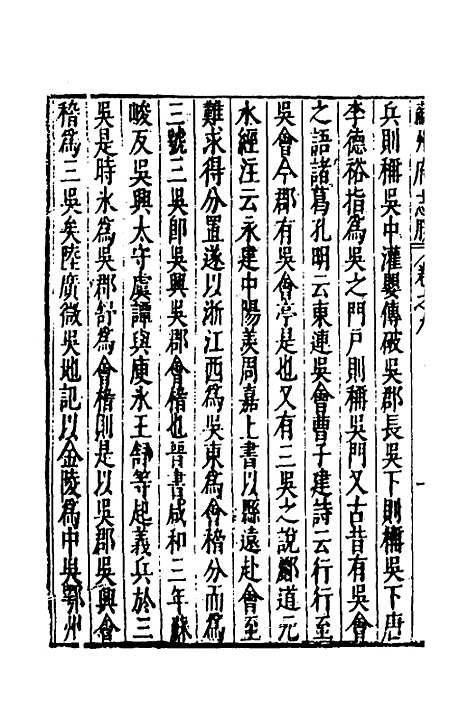 蘇州府志勝 卷之九 一
兵則稱吳中灌嬰傳破吳郡長吳下則稱吳下唐
李德裕指爲吳之門戶則稱吳門又古昔有吳會
之語諸葛孔明云東連吳會曹子建詩云行行至
吳會今郡有吳會亭是也又有三吳之說酈道元
水經注云永建中陽羡周嘉上書以縣遠赴會至
難求得分置遂以浙江西爲吳東爲會稽分而爲
三號三吳卽吳興吳郡會稽也晉書咸和三年蘇
峻反吳興太守虞譚與庾氷王舒等起義兵於三
吳是時氷爲吳郡舒爲會稽則是以吳郡吳興會
稽爲三吳矣陸廣微吳地記以金陵爲中吳鄂州